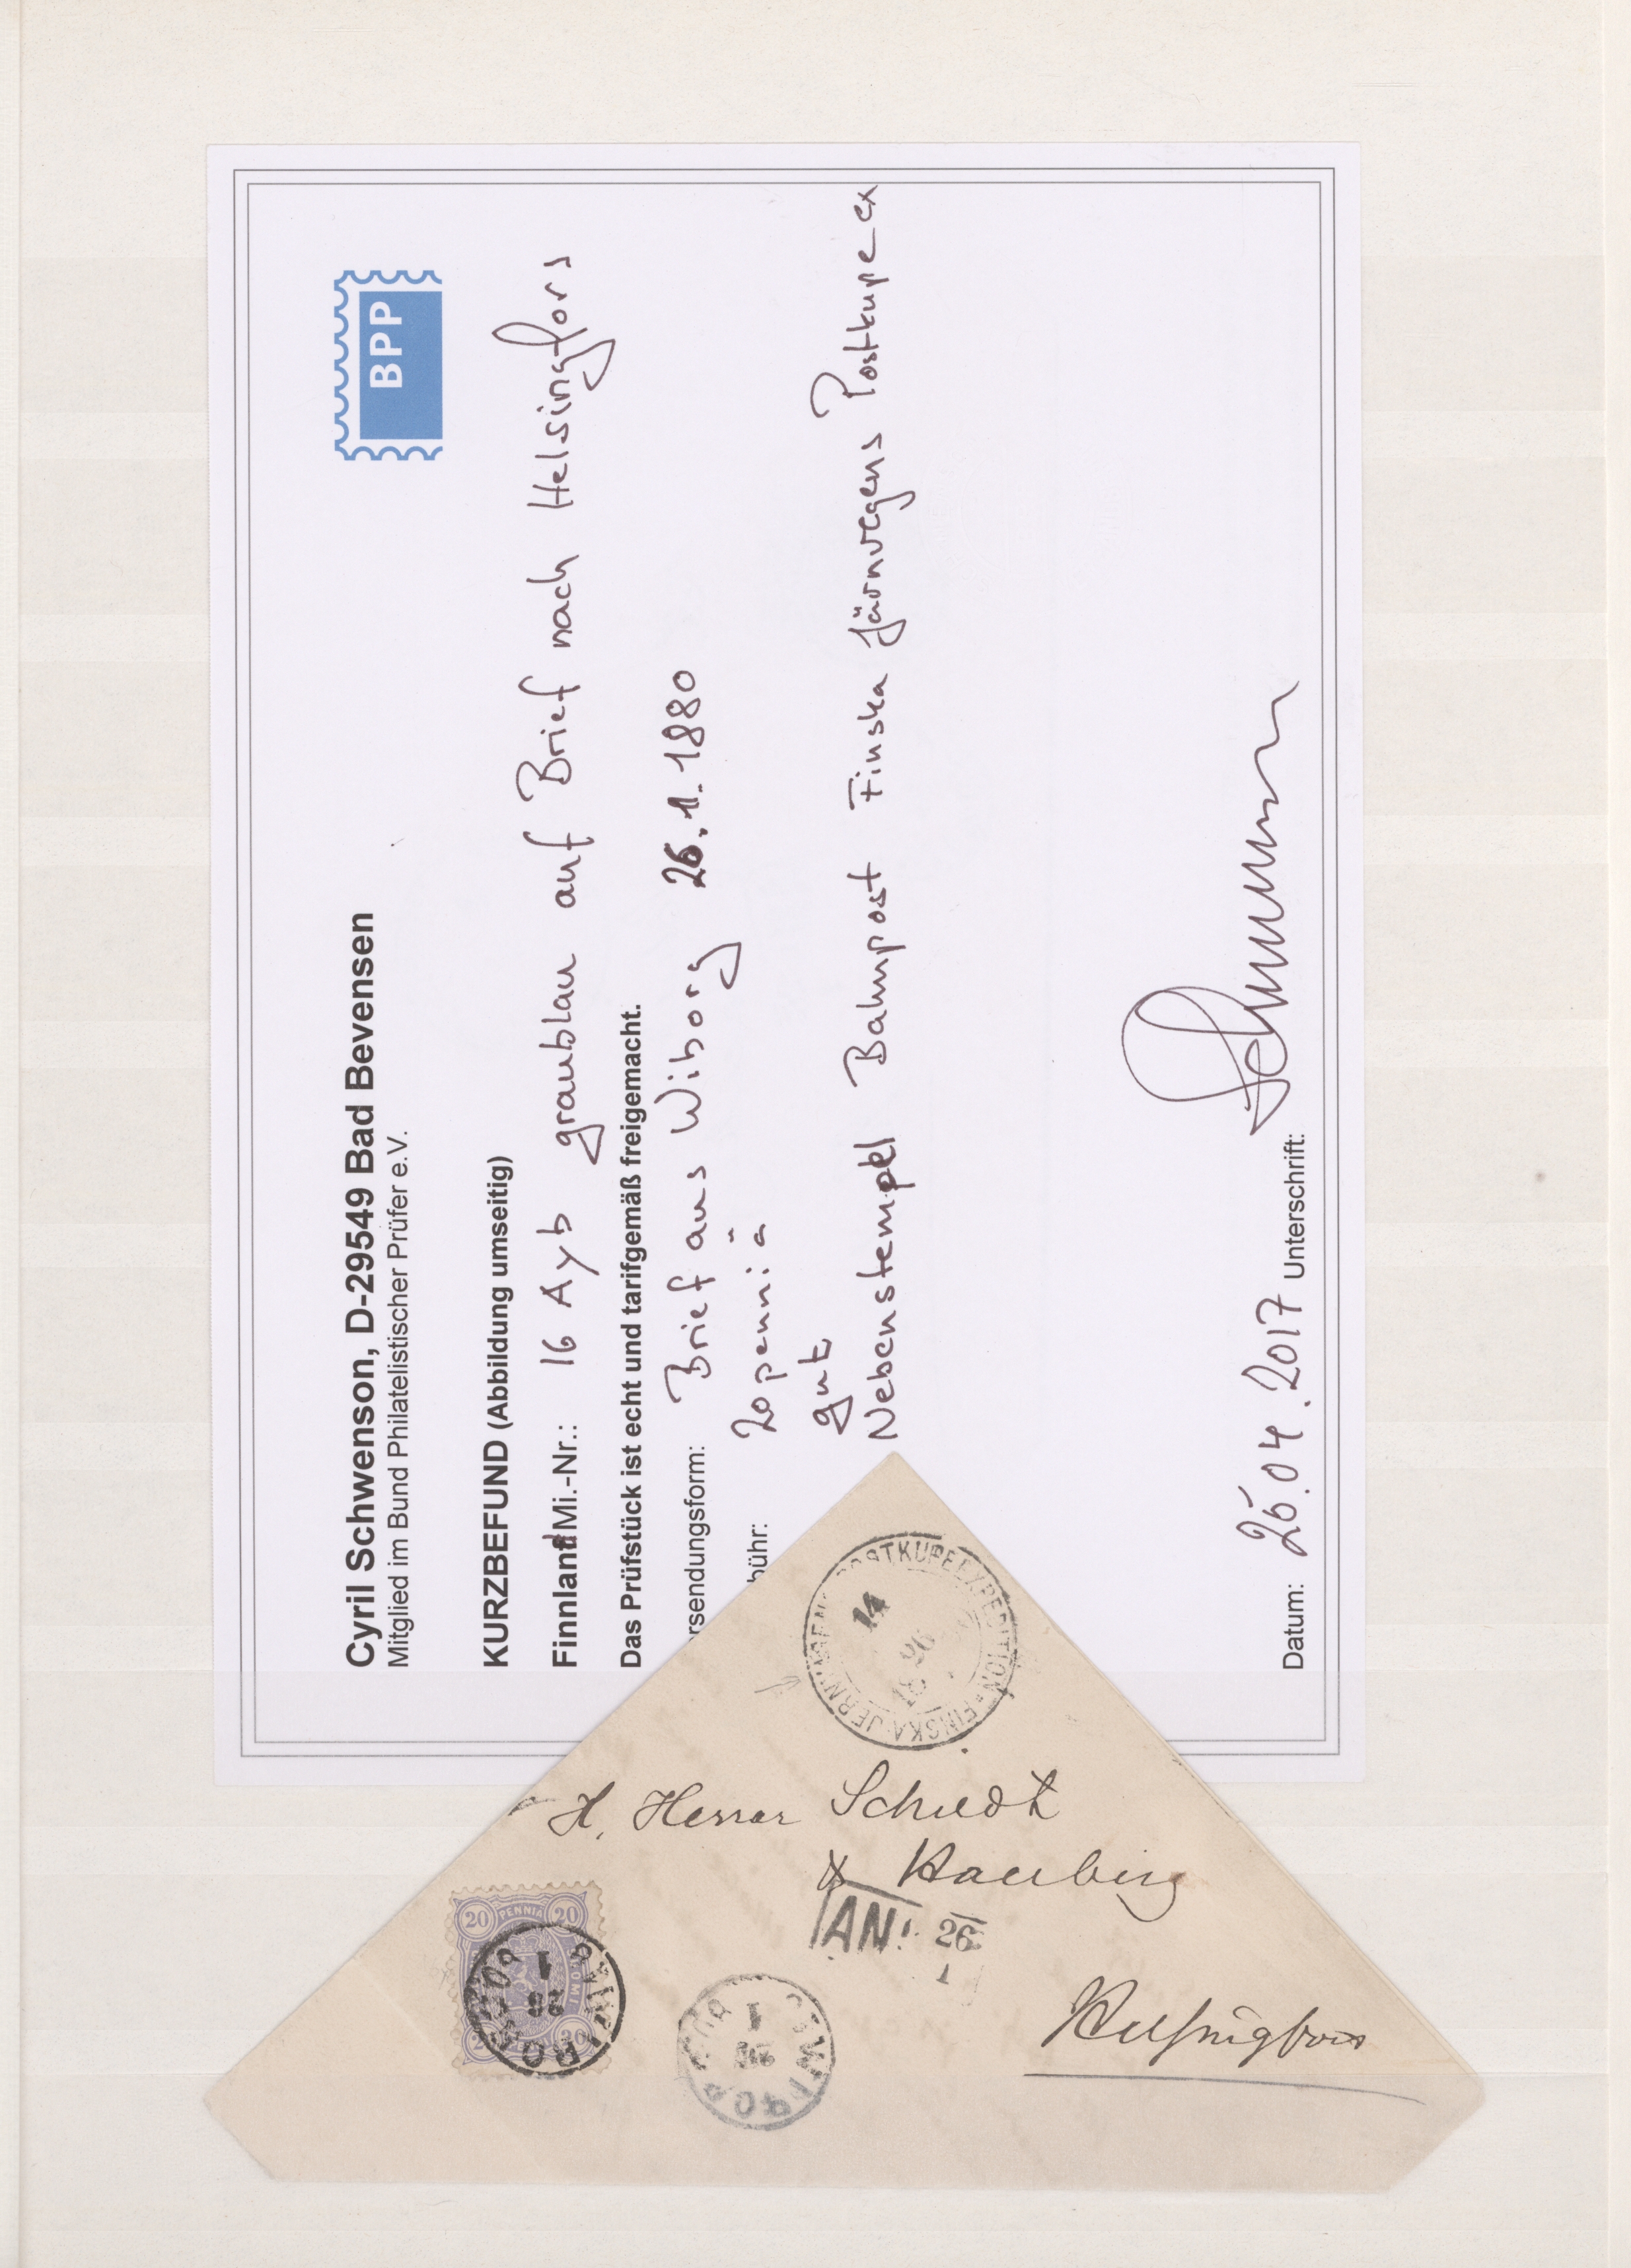 BPP
Cyril Schwenson, D-29549 Bad Bevensen
Mitglied im Bund Philatelistischer Prüfer e.V.
KURZBEFUND (Abbildung umseitig)
Finnland Mi.-Nr.: 16 Ayb graublau auf Brief nach Helsingfors
Das Prüfstück ist echt und tarifgemäß freigemacht.
rsendungsform: Brief aus Wiborg 26.1.1880
bühr: 20 penniä
gut
Nebenstempel Bahnpost Finska Järnvegens Postkupeex
Datum: 25.04.2017 Unterschrift:
POSTKUPEEXPEDITION FINSKA JERNVÄGENS
14
26
18
H. Herrar
&
Helsingfors
20 PENNIÄ 20
20
1
AN. 26
1
1